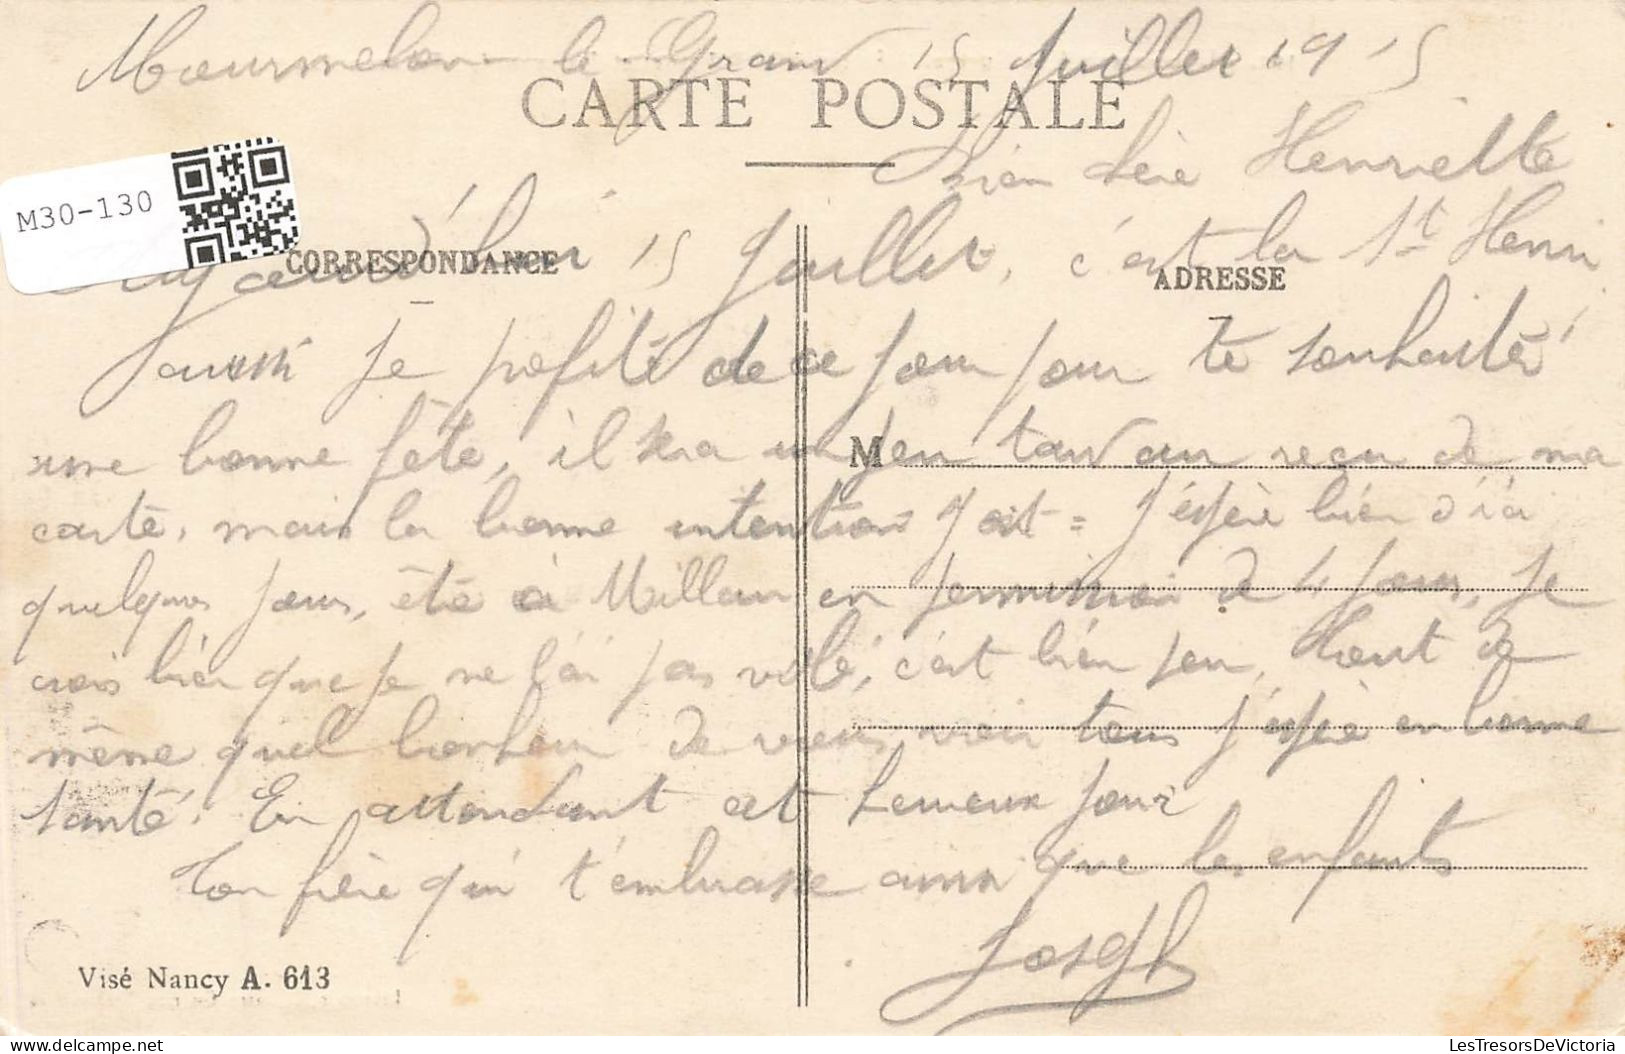 Mourmelon le Grand 15 Juillet 1915
CARTE POSTALE
Bien chère Henriette
M30-130
CORRESPONDANCE
ADRESSE
Aujourd'hui 15 Juillet, c'est la St Henri
aussi je profite de ce jour pour te souhaité
une bonne fête, il sera un peu tard au reçu de ma
M
carte, mais la bonne intention y est = J'espère bien d'ici
quelques jours, être à Millau en permission de 4 jours, je
crois bien que je ne l'ai pas volé, c'est bien peu, tout de
même quel bonheur de vous voir tous j'espère en bonne
santé. En attendant cet heureux jour
Ton frère qui t'embrasse ainsi que les enfants
Joseph
Visé Nancy A. 613
LesTresorsDeVictoria